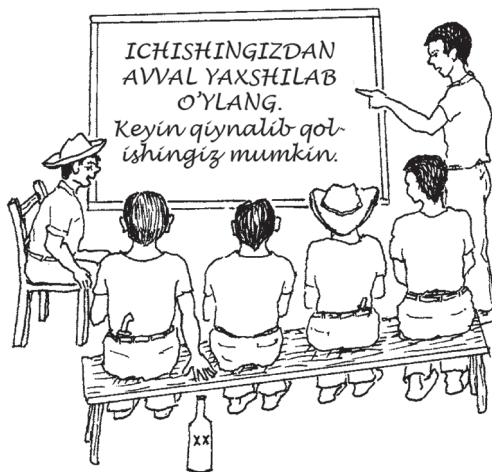 ICHISHINGIZDAN
AVVAL YAXSHILAB
O'YLANG.
Keyin qiynalib qol-
ishingiz mumkin.
XX